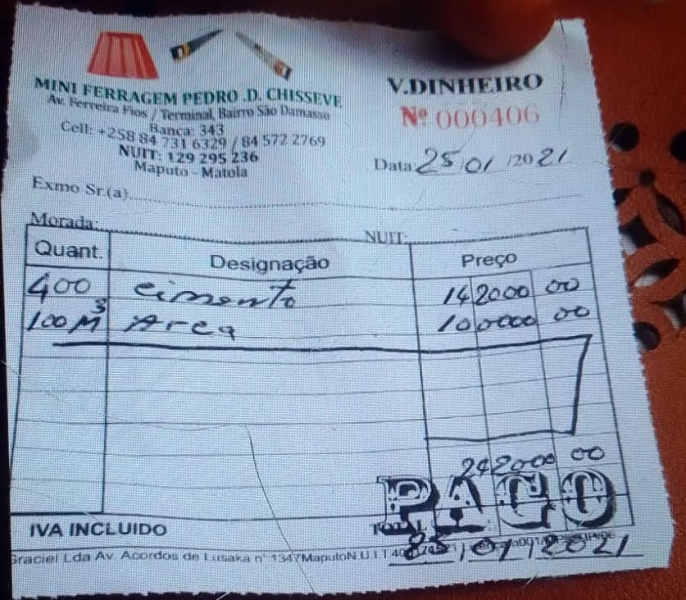 MINI FERRAGEM PEDRO .D. CHISSEVE
Av. Ferreira Fios / Terminal, Bairro São Damasso
Banca: 343
Cell: +258 84 731 6329 / 84 572 2769
NUIT: 129 295 236
Maputo - Matola
V.DINHEIRO
Nº 000406
Data 25/01/2021
Exmo Sr.(a)
Morada: NUIT:
Quant. Designação Preço
400 cimento 142000 00
100 M³ Area 100000 00
242000 00
PAGO
IVA INCLUIDO
25/01/2021
Graciel Lda Av. Acordos de Lusaka nº 1347MaputoN.U.I.T